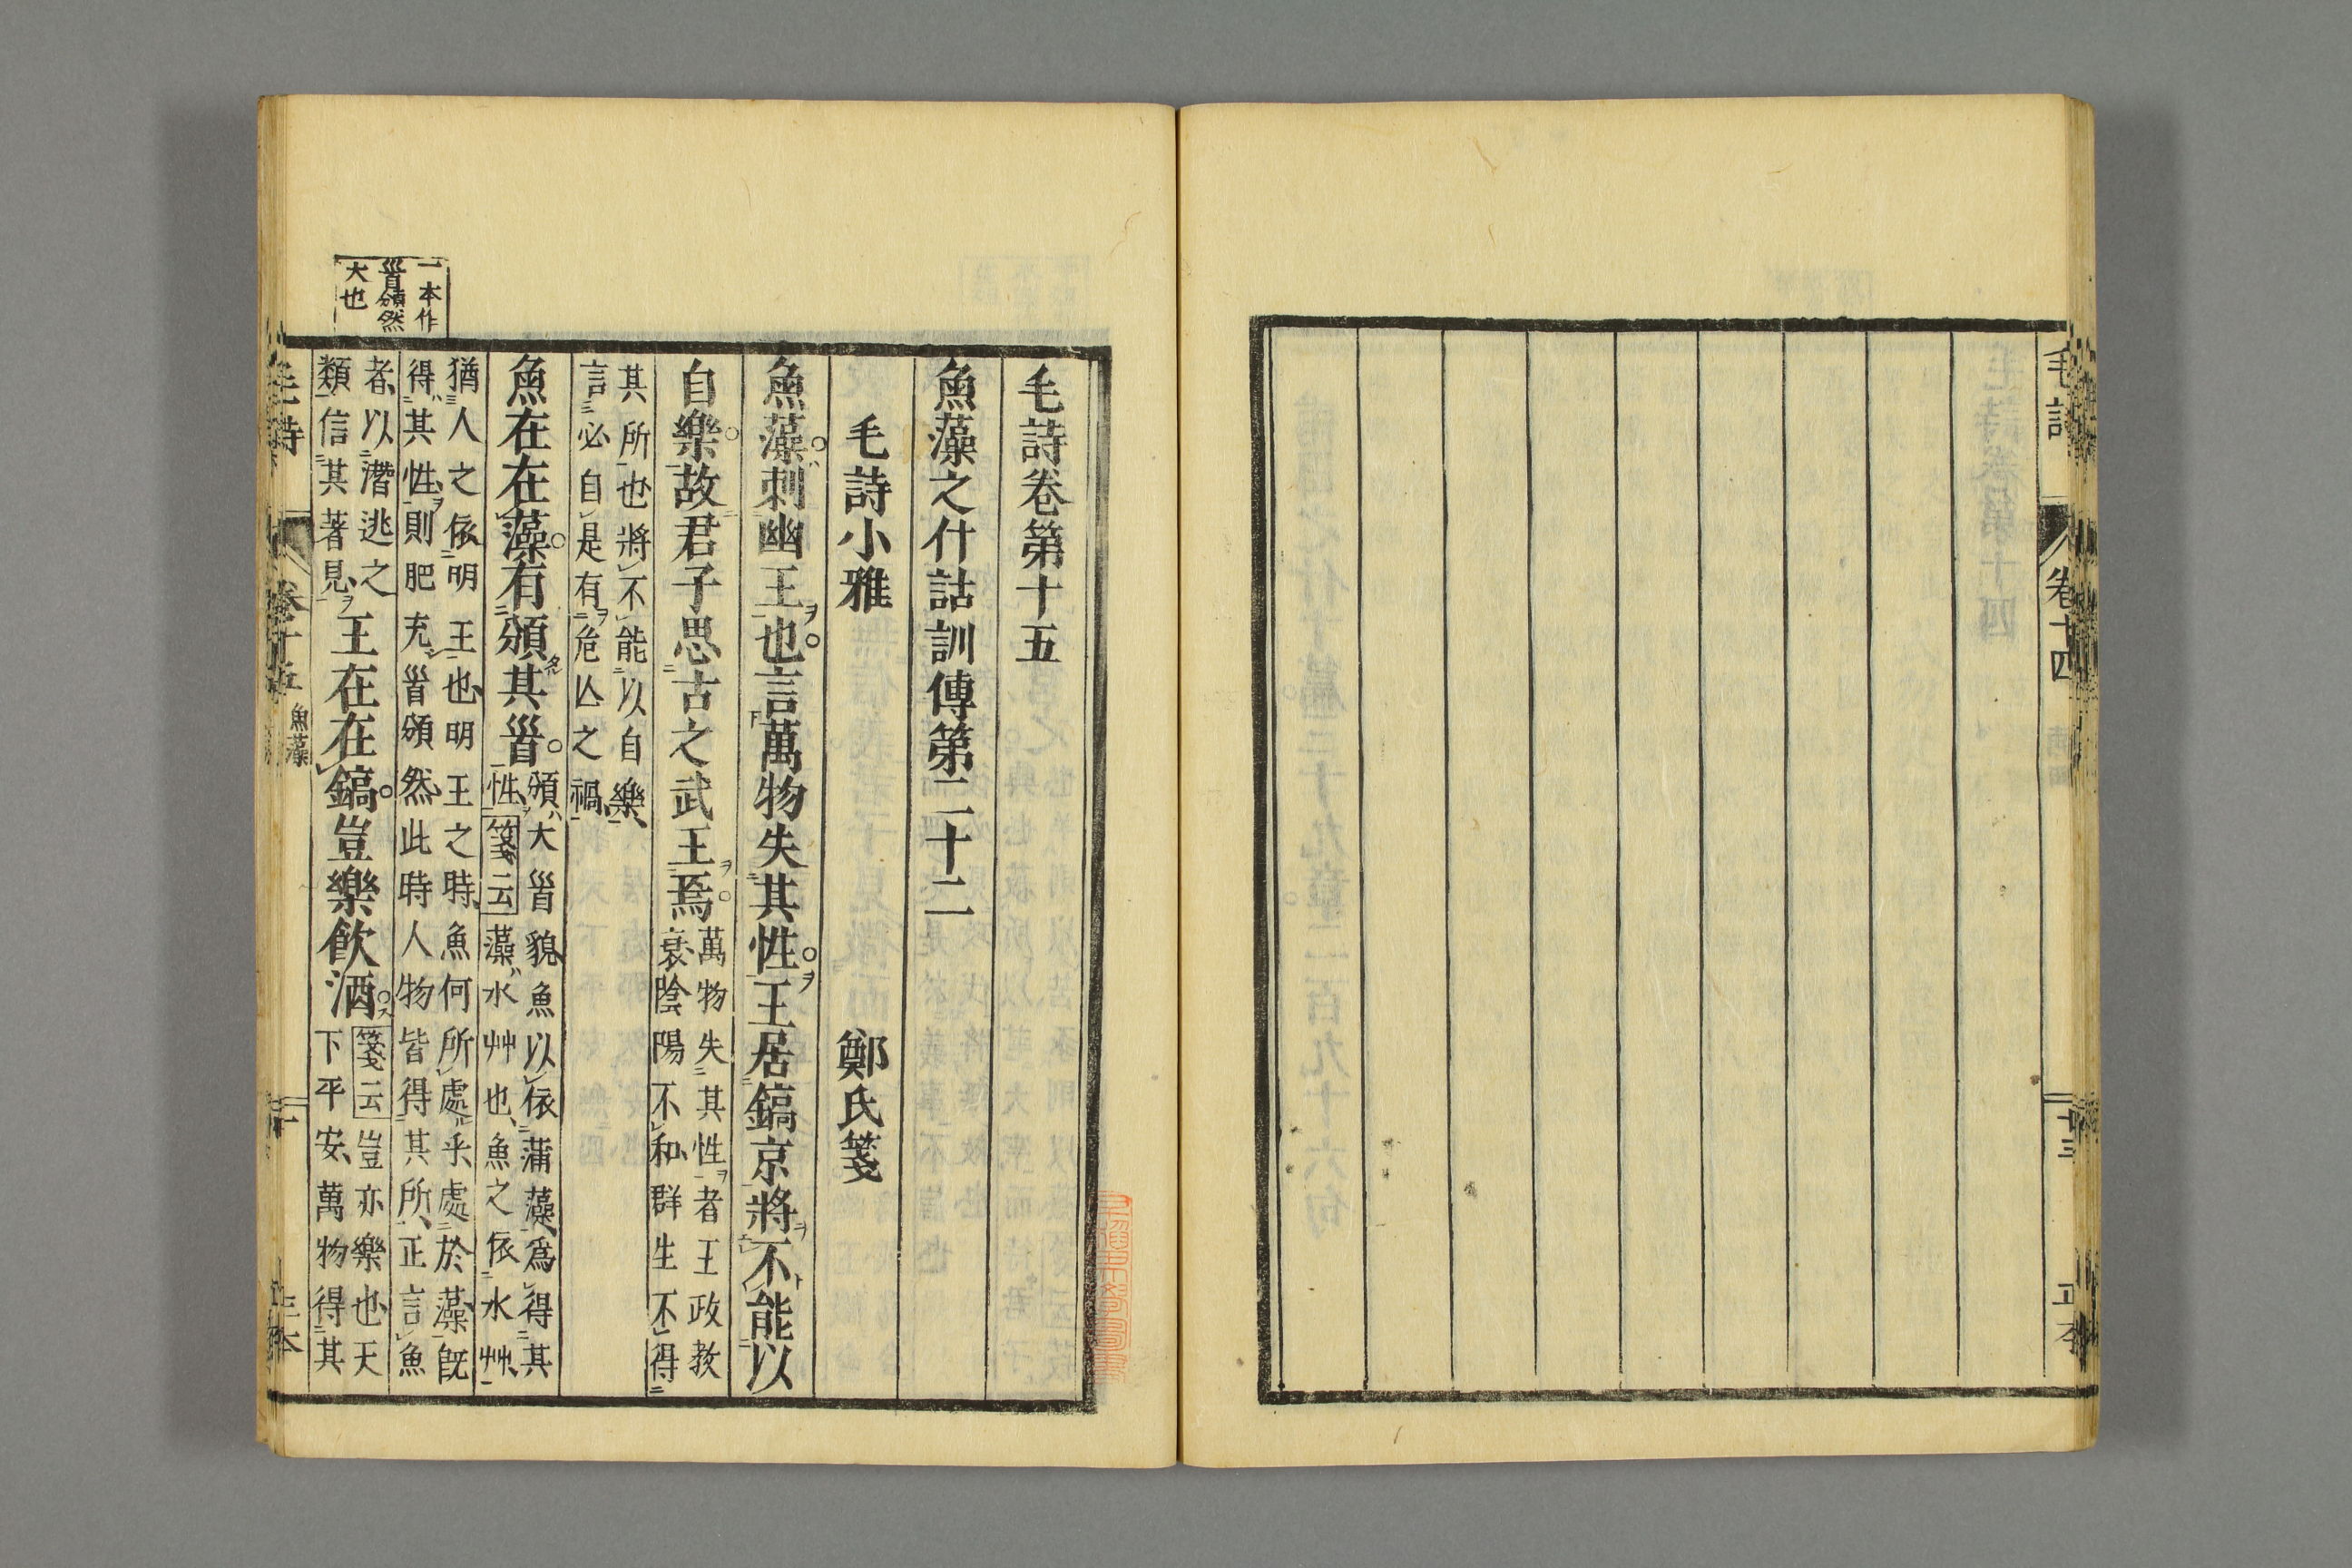 毛詩
卷十四
十三
正本
毛詩卷第十五
魚藻之什詁訓傳第二十二
毛詩小雅　鄭氏箋
魚藻刺幽王也言萬物失其性王居鎬京將不能以
自樂故君子思古之武王焉
萬物失其性者王政教
衰陰陽不和群生不得
其所也將不能以自樂
言必自是有危亾之禍
魚在在藻有頒其首
頒大首貌魚以依蒲藻爲得其
性箋云藻水艸也魚之依水艸
猶人之依明王也明王之時魚何所處乎處於藻旣
得其性則肥充首頒然此時人物皆得其所正言魚
者以潛逃之
類信其著見
王在在鎬豈樂飲酒
箋云豈亦樂也天
下平安萬物得其
一本作
首頒然
大也
毛詩
卷十五
魚藻
一
正本